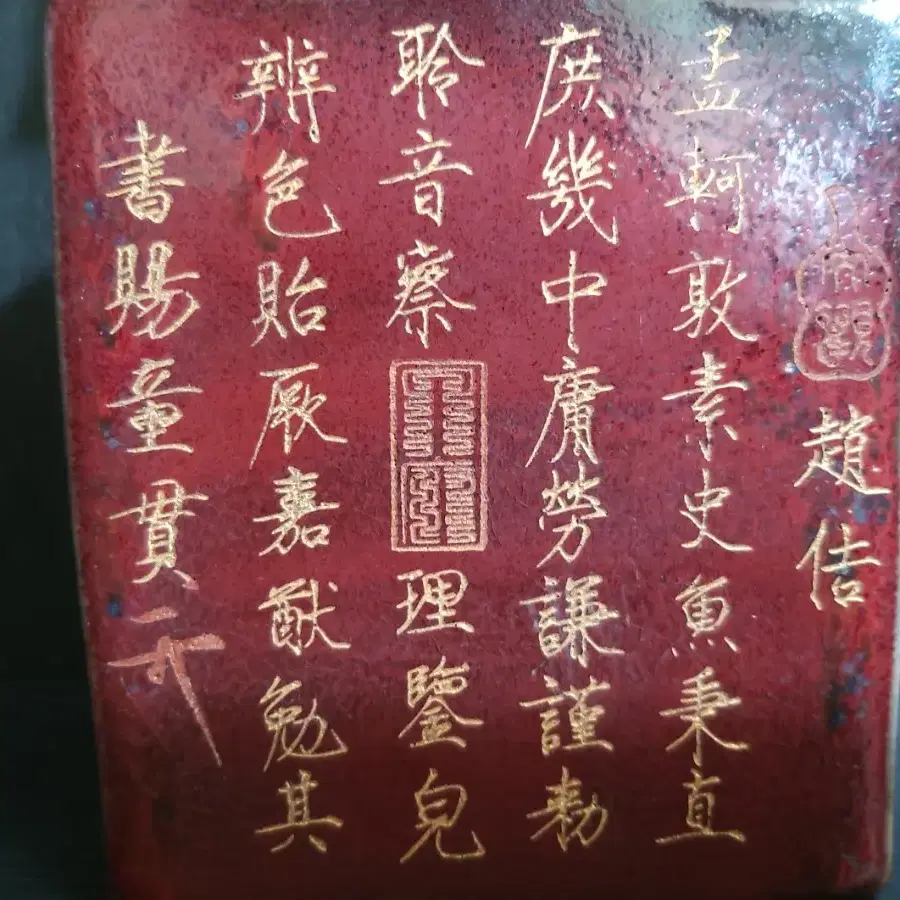 趙佶
孟軻敦素史魚秉直
庶幾中庸勞謙謹勅
聆音察理鑒皃
辨色貽厥嘉猷勉其
書賜童貫